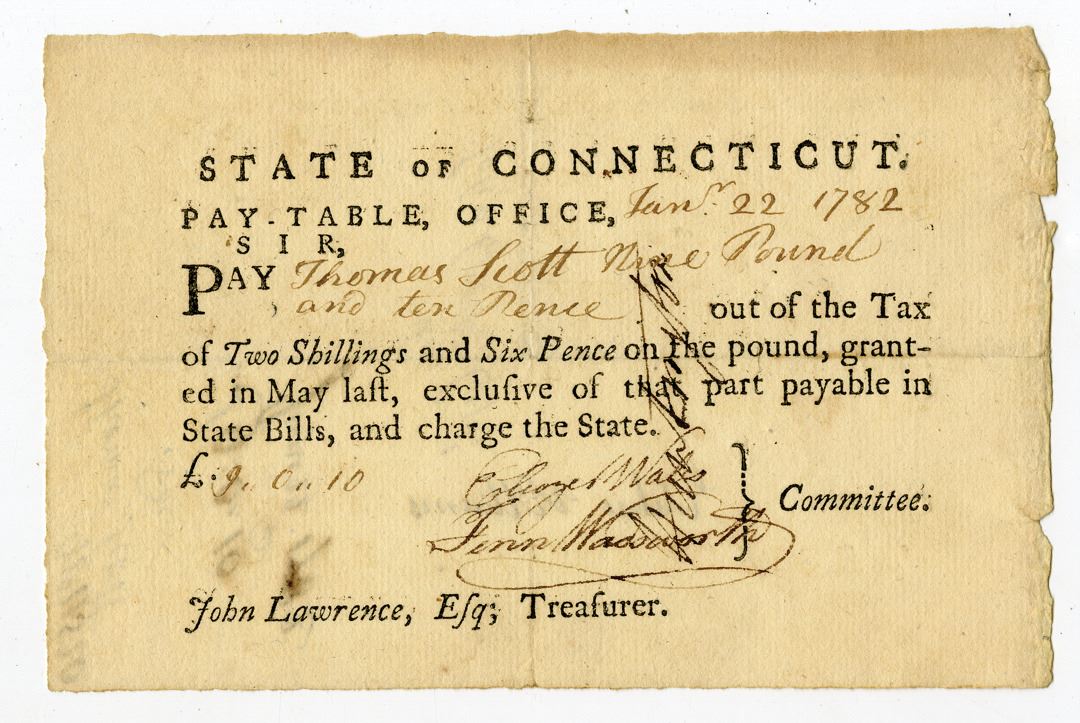 STATE OF CONNECTICUT.
PAY-TABLE, OFFICE, Janʳ. 22 1782
SIR,
PAY Thomas Scott Nine Pound
and ten Pence out of the Tax
of Two Shillings and Six Pence on the pound, grant-
ed in May laſt, excluſive of that part payable in
State Bills, and charge the State.
£. 9.. 0.. 10
Wales
Fenn Wadsworth } Committee.
John Lawrence, Eſq; Treaſurer.